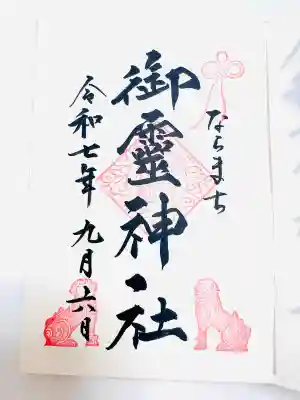 ならまち
御靈神社
令和七年 九月六日